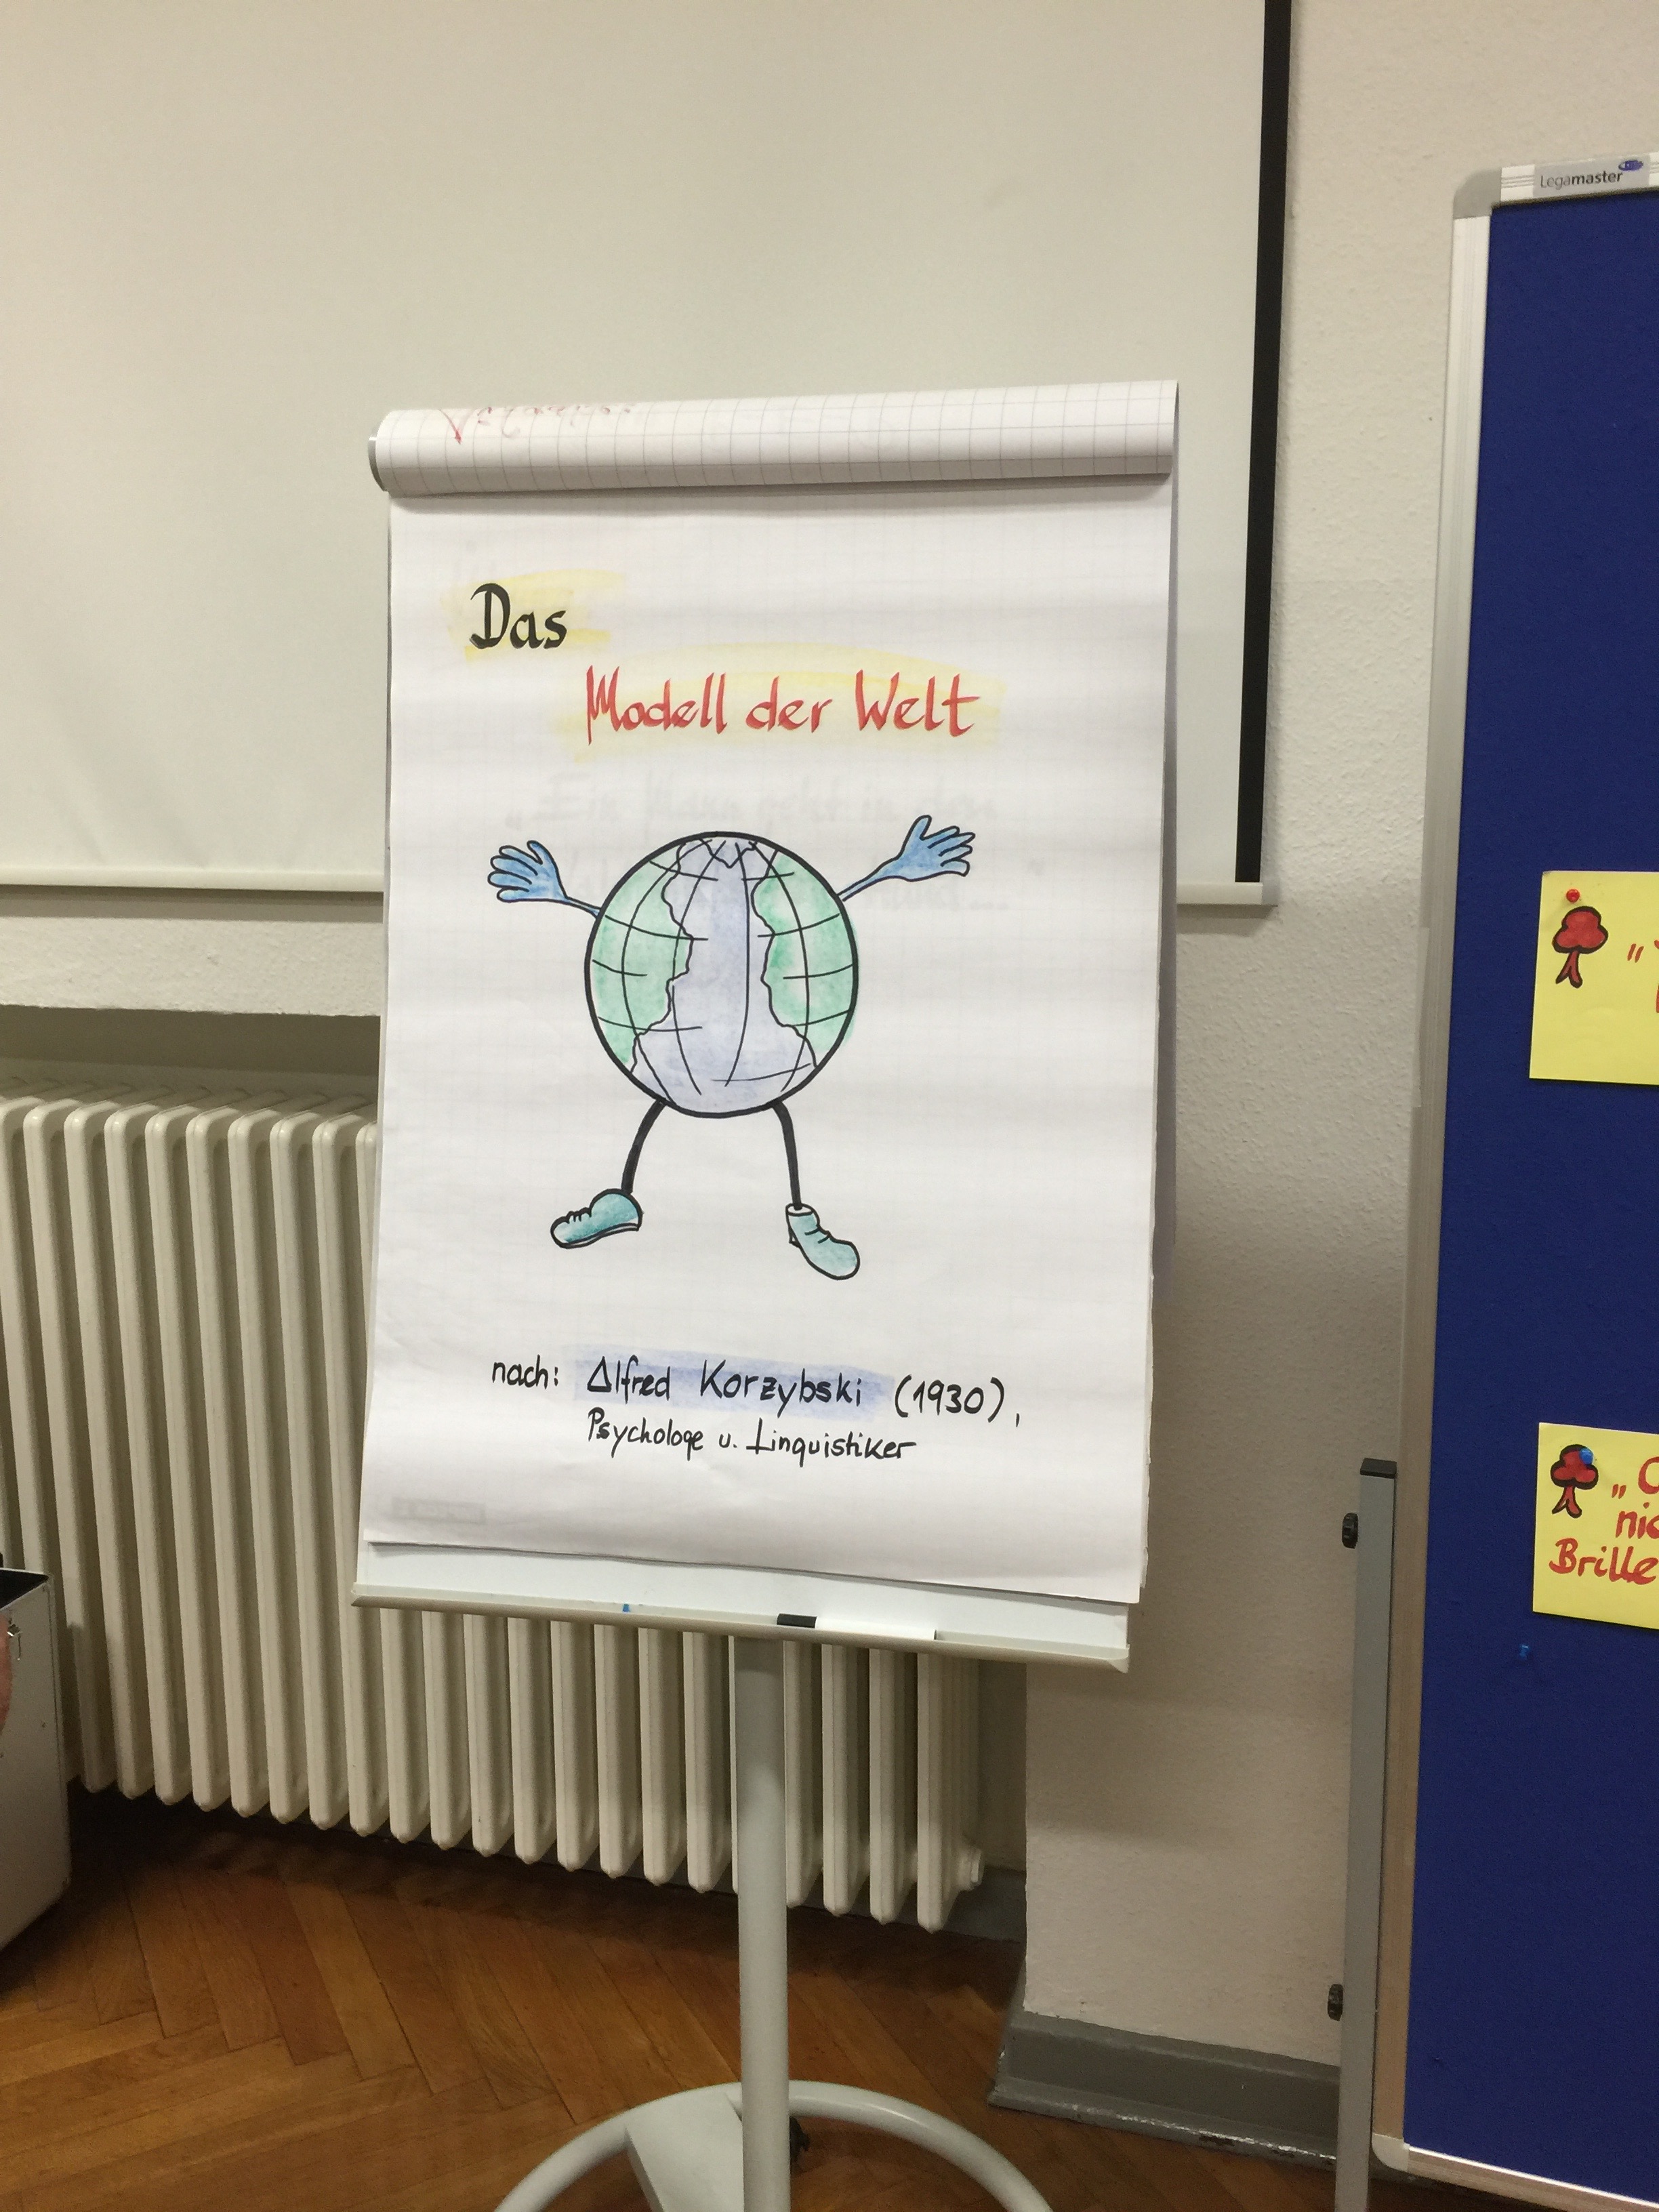 Das
Modell der Welt
„Ein Mann geht in den
nach: Alfred Korzybski (1930),
Psychologe u. Linguistiker
Legamaster
"
„O
nic
Brille